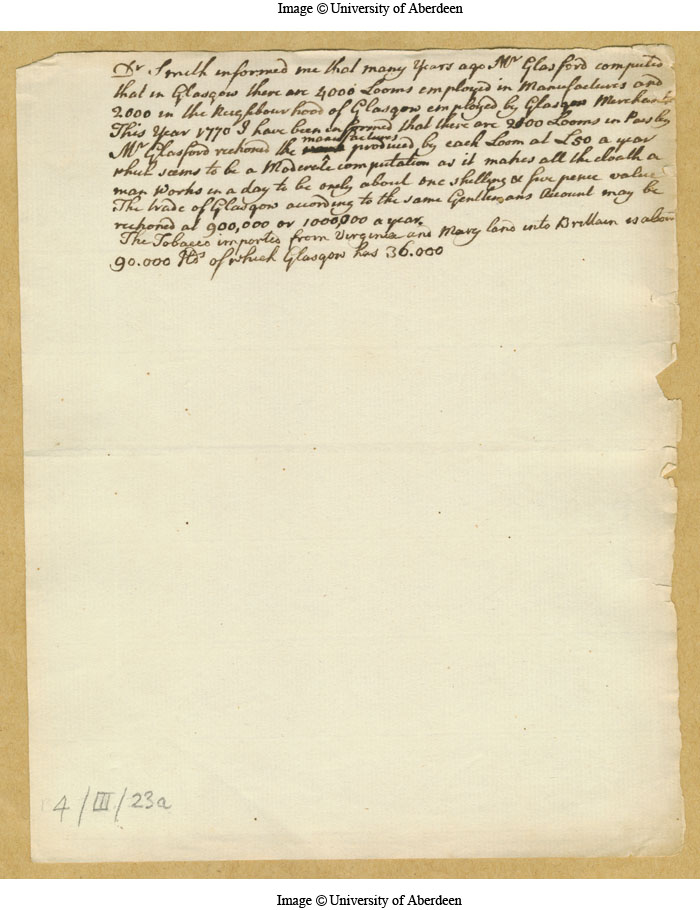 Image © University of Aberdeen
Dr Smith informed me that many Years ago Mr Glasford computed
that in Glasgow there are 4000 Looms employed in Manufactures and
2000 in the Neighbourhood of Glasgow employed by Glasgow Merchants
This Year 1770 I have been informed that there are 2000 Looms in Pasley
manufactures
Mr Glasford reckoned the produced by each Loom at L50 a year
which seems to be a Moderate computation as it makes all the cloath a
man works in a day to be only about one shilling & five pence value
The trade of Glasgow according to the same Gentlemans Account may be
reckoned at 900,000 or 1000000 a year.
The Tobacco imported from Virginia and Mary land into Brittain is about
90.000 Hds of which Glasgow has 36.000
4/III/23a
Image © University of Aberdeen